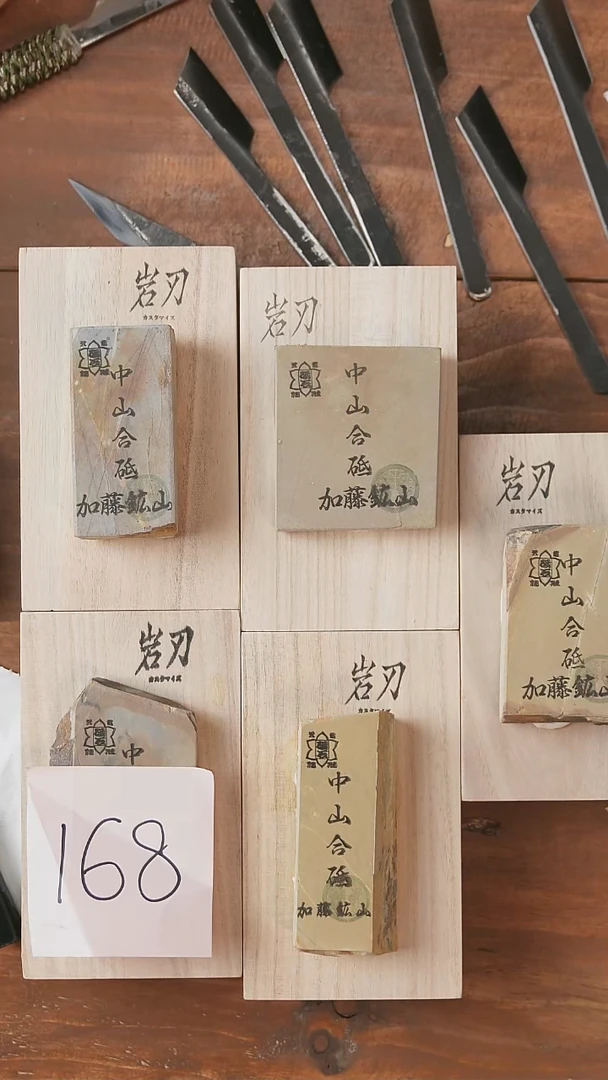 岩刃
カスタマイズ
中
山
合
砥
加藤鉱山
岩刃
中
山
合
砥
加藤鉱山
岩刃
カスタマイズ
中
山
合
砥
加藤鉱山
岩刃
カスタマイズ
中
168
岩刃
中
山
合
砥
加藤鉱山